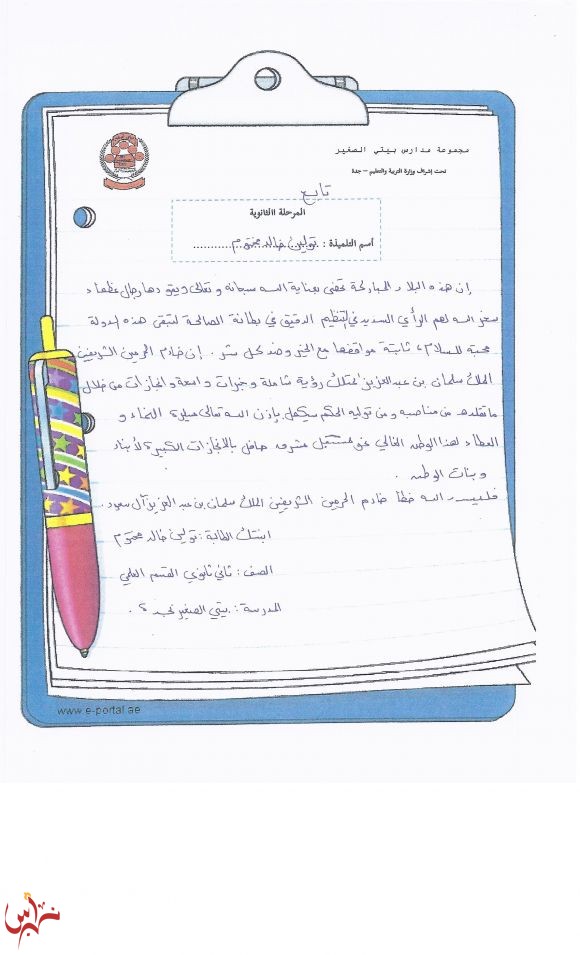 مجموعة مدارس بيتي الصغير
تحت إشراف وزارة التربية والتعليم – جدة
تابع
المرحلة الثانوية
أسم التلميذة : تولين خالد مختوم
إن هذه البلاد المباركة تحظى بعناية الله سبحانه وتعالى ويقودها رجال عظماء
سخر الله لهم الرأي السديد في التنظيم الدقيق في بطانة الصالحة لتبقى هذه الدولة
محبة للسلام، ثابتة مواقفها مع الخير وضد كل شر. إن خادم الحرمين الشريفين
الملك سلمان بن عبدالعزيز امتلك رؤية شاملة وخبرات واسعة وانجازات من خلال
ما تقلده من مناصبه ومن توليه الحكم سيكمل بإذن الله تعالى مسيرة النماء و
العطاء لهذا الوطن الغالي نحو مستقبل مشرف حافل بالانجازات الكبيرة لأبناء
وبنات الوطن .
الله خطا خادم الحرمين الشريفين الملك سلمان بن عبد العزيز آل سعود.
ابنتك الطالبة : تولين خالد مختوم
الصف : ثاني ثانوي القسم العلمي
المدرسة : بيتي الصغير بجدة .
www.e-portal.ae